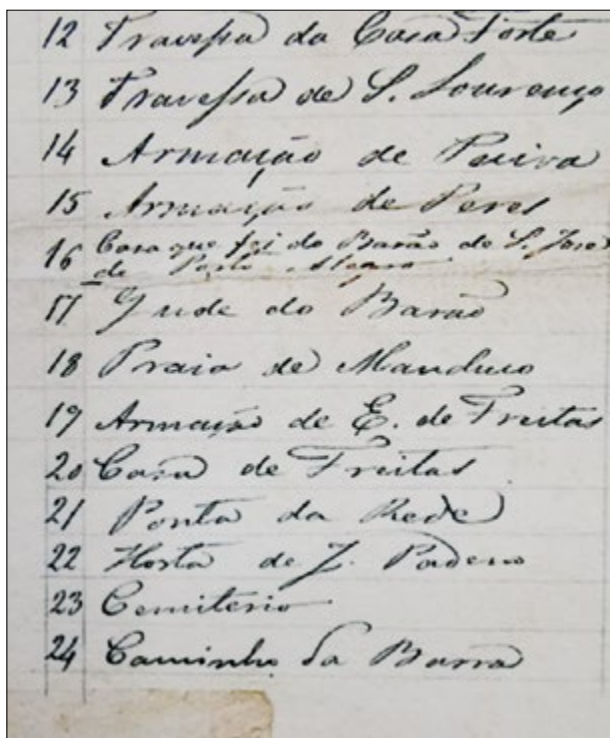 12 Travessa da Casa Forte
13 Travessa de S. Lourenço
14 Armação de Paiva
15 Armação de Peres
16 Casa que foi do Barão de S. José
de Porto Alegre
17 do Barão
18 Praia de Manduco
19 Armação de E. de Freitas
20 Casa de Freitas
21 Ponta da Rede
22 Horta de J.
23 Cemiterio
24 Caminho da Barra